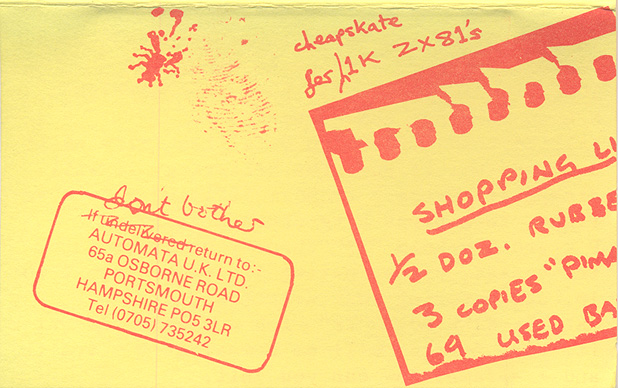 cheapskate
for 1K ZX81's
SHOPPING LI
1/2 DOZ. RUBBE
3 COPIES "PIMA
69 USED BA
don't bother
If undelivered return to:-
AUTOMATA U.K. LTD.
65a OSBORNE ROAD
PORTSMOUTH
HAMPSHIRE PO5 3LR
Tel (0705) 735242